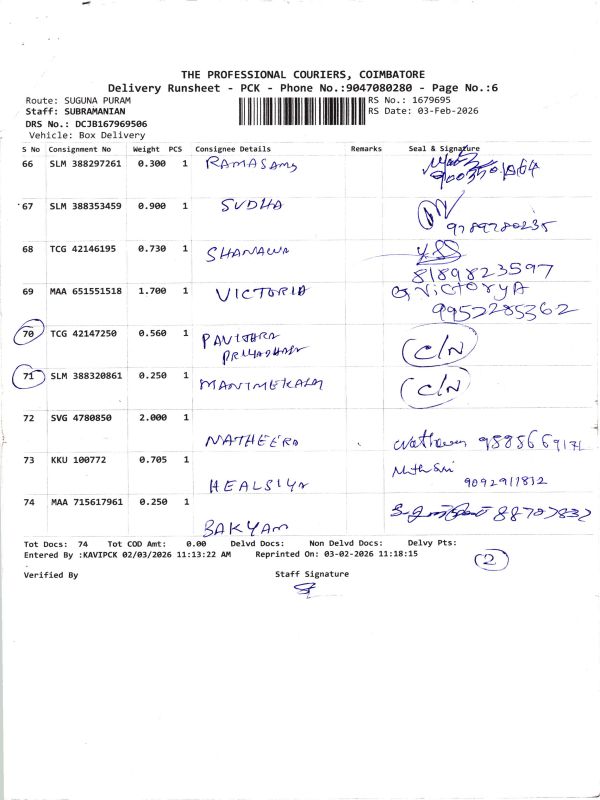 THE PROFESSIONAL COURIERS, COIMBATORE
Delivery Runsheet - PCK - Phone No.:9047080280 - Page No.:6
Route: SUGUNA PURAM RS No.: 1679695
Staff: SUBRAMANIAN RS Date: 03-Feb-2026
DRS No.: DCJB167969506
Vehicle: Box Delivery
S No Consignment No Weight PCS Consignee Details Remarks Seal & Signature
66 SLM 388297261 0.300 1 RAMASAMY
67 SLM 388353459 0.900 1 SUDHA
9789780235
68 TCG 42146195 0.730 1 SHANAWA
8189823597
69 MAA 651551518 1.700 1 VICTORIA G VICTORYA
9952285362
70 TCG 42147250 0.560 1 PAVITHRA C/N
71 SLM 388320861 0.250 1 MANIMEKALAI C/N
72 SVG 4780850 2.000 1
NATHEERA 9885669171
73 KKU 100772 0.705 1
HEALSIYA 9092911812
74 MAA 715617961 0.250 1
BAKYAM 88707832
Tot Docs: 74 Tot COD Amt: 0.00 Delvd Docs: Non Delvd Docs: Delvy Pts:
Entered By :KAVIPCK 02/03/2026 11:13:22 AM Reprinted On: 03-02-2026 11:18:15
2
Verified By Staff Signature